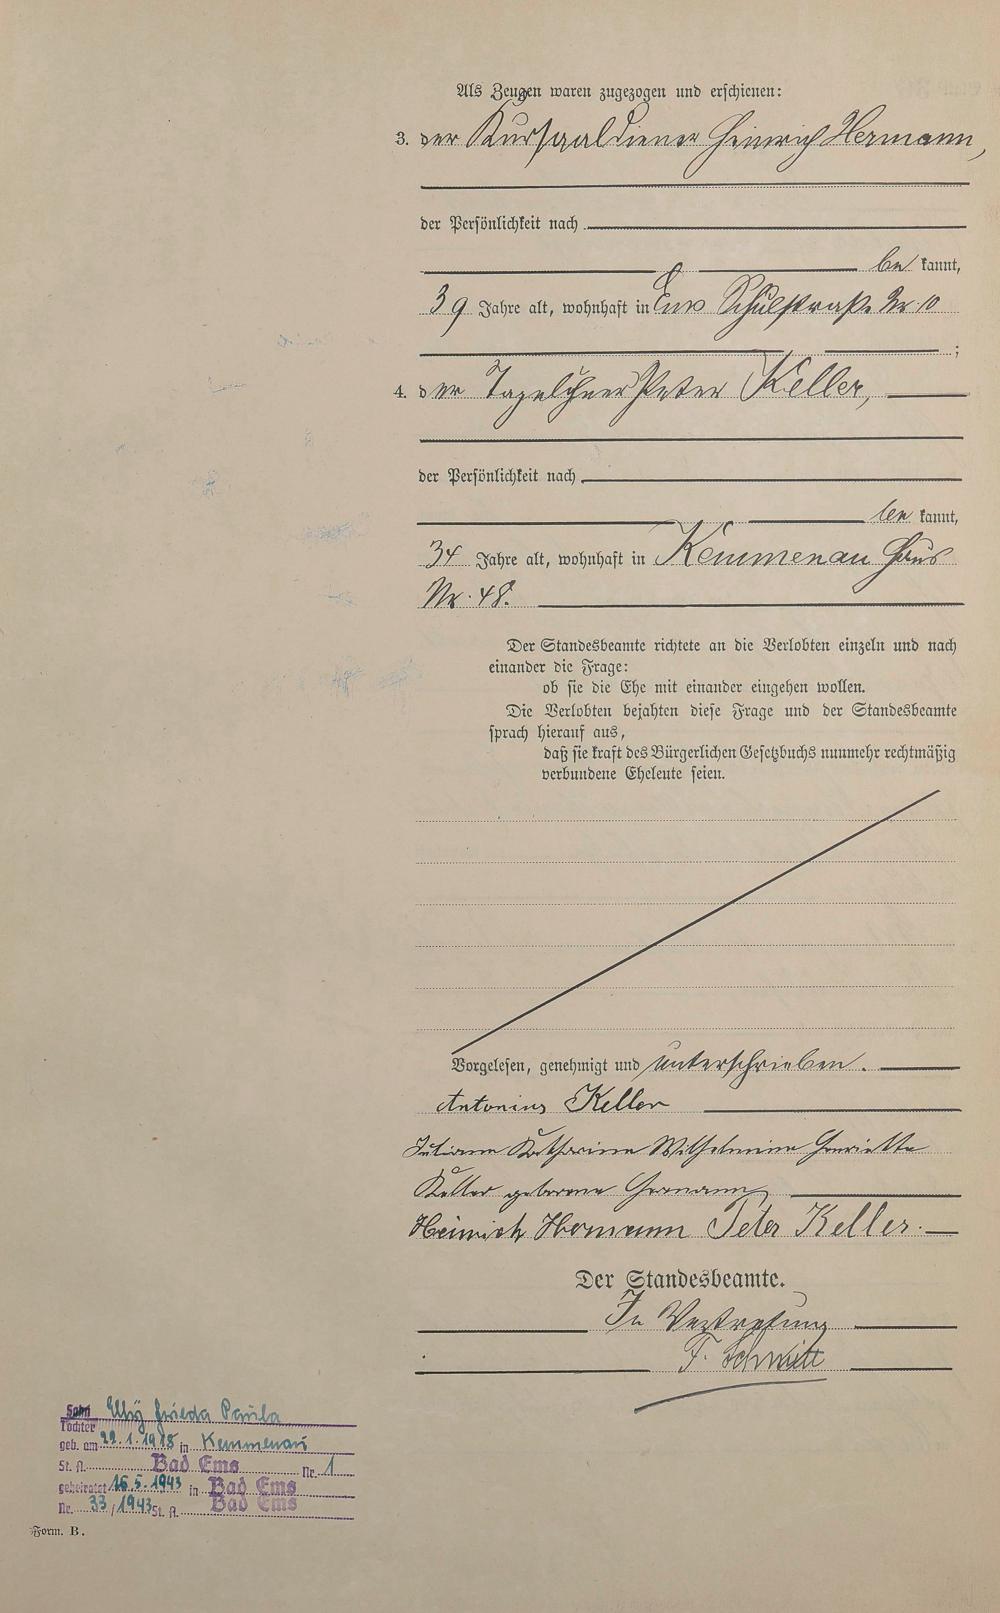 Als Zeugen waren zugezogen und erschienen:
3. der Kursaaldiener Heinrich Hermann,
der Persönlichkeit nach
be kannt,
39 Jahre alt, wohnhaft in Ems Schulstraße Nr. 10
;
4. der Tagelöhner Peter Keller,
der Persönlichkeit nach
be kannt,
34 Jahre alt, wohnhaft in Kemmenau Haus
Nr. 48.
Der Standesbeamte richtete an die Verlobten einzeln und nach
einander die Frage:
ob sie die Ehe mit einander eingehen wollen.
Die Verlobten bejahten diese Frage und der Standesbeamte
sprach hierauf aus,
daß sie kraft des Bürgerlichen Gesetzbuchs nunmehr rechtmäßig
verbundene Eheleute seien.
Vorgelesen, genehmigt und unterschrieben.
Antonius Keller
Juliane Katharine Wilhelmine Henriette
Keller geborene Hermann
Heinrich Hermann Peter Keller.
Der Standesbeamte.
In Vertretung
F. Schmitt
Sohn Elly Frieda Paula
Tochter
geb. am 22.1.1918 in Kemmenau
St. A. Bad Ems Nr. 1
geheiratet 16.5.1943 in Bad Ems
Nr. 33/1943 St. A. Bad Ems
Form. B.